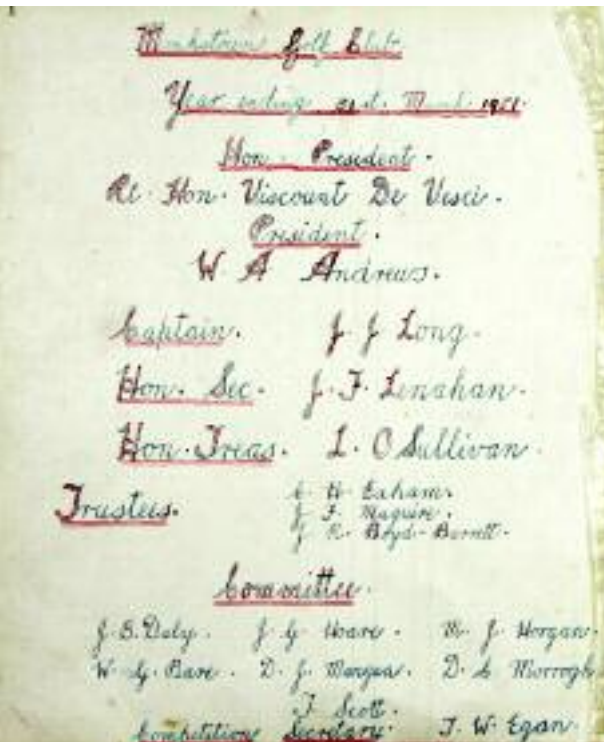 Monkstown Golf Club
Year ending 31st. March 1951
Hon. President.
Rt. Hon. Viscount De Vesci.
President.
W A Andrews.
Captain. J J Long.
Hon. Sec. J. F. Lenahan.
Hon. Treas. L. O Sullivan.
Trustees. C H Exham.
J F. Maguire.
J R. Boyd-Barrett.
Committee.
J. B. Daly. J G Hoare. M. J Horgan.
W. G. D. J. D. C Morrogh
J Scott.
Competitions Secretary. J. W. Egan.